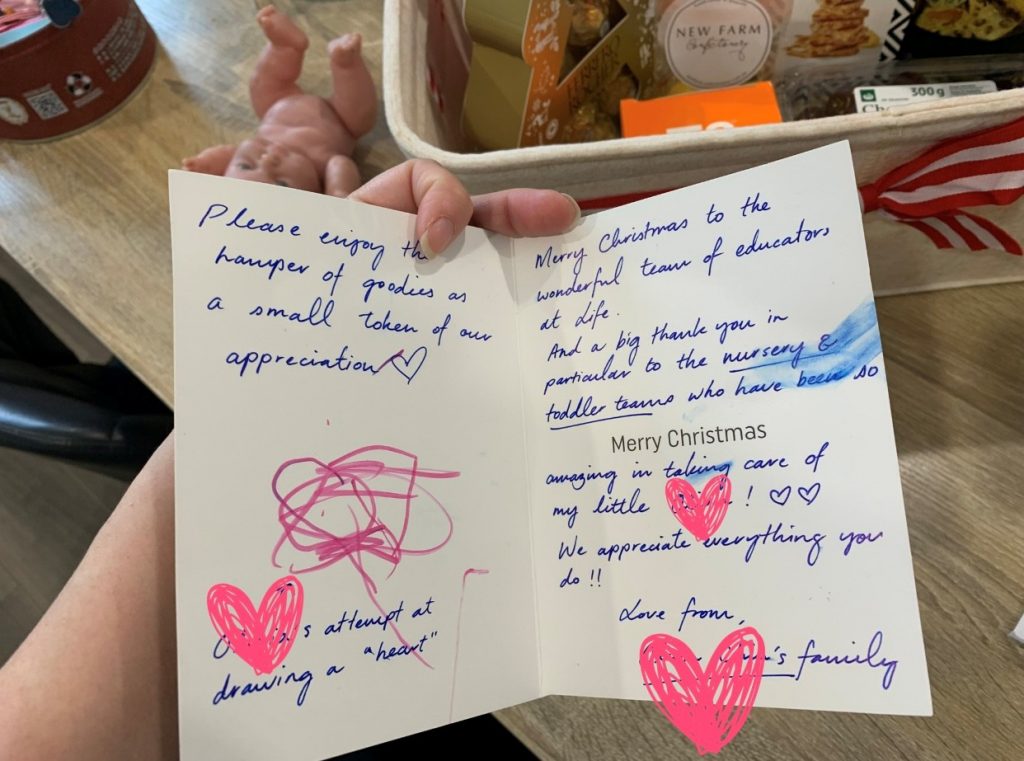 NEW FARM
Confectionery
300g
Please enjoy th
hamper of goodies as
a small token of our
appreciation
's attempt at
drawing a "heart"
Merry Christmas to the
wonderful team of educators
at Life.
And a big thank you in
particular to the nursery &
toddler teams who have been so
Merry Christmas
amazing in taking care of
my little !
We appreciate everything you
do !!
Love from,
's family